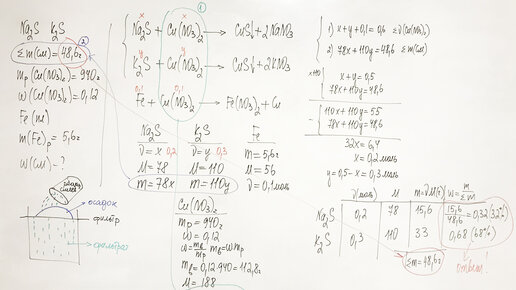 Na₂S K₂S
Σm(см)=48,6г
mр(Cu(NO₃)₂)=940г
w(Cu(NO₃)₂)=0,12
Fe(пл)
m(Fe)р=5,6г
w(см)-?
осадок
фильтр
фильтрат
x x
Na₂S+Cu(NO₃)₂ → CuS↓+2NaNO₃
y y
K₂S+Cu(NO₃)₂ → CuS↓+2KNO₃
0,1 0,1
Fe+Cu(NO₃)₂ → Fe(NO₃)₂+Cu
Na₂S K₂S Fe
ν=x 0,2 ν=y 0,3 m=5,6г
M=78 M=110 M=56
m=78x m=110y ν=0,1моль
Cu(NO₃)₂
mр=940г
w=0,12
w=mв/mр mв=w·mр
mв=0,12·940=112,8г
M=188
1) x+y+0,1=0,6 Σν(Cu(NO₃)₂)
2) 78x+110y=48,6 Σm(см)
x110 x+y=0,5
78x+110y=48,6
110x+110y=55
78x+110y=48,6
32x=6,4
x=0,2моль
y=0,5-x=0,3моль
ν(моль) M m=νM(г) w=m/Σm
Na₂S 0,2 78 15,6 15,6/48,6=0,32(32%)
K₂S 0,3 110 33 0,68(68%)
Σm=48,6г
ответ!